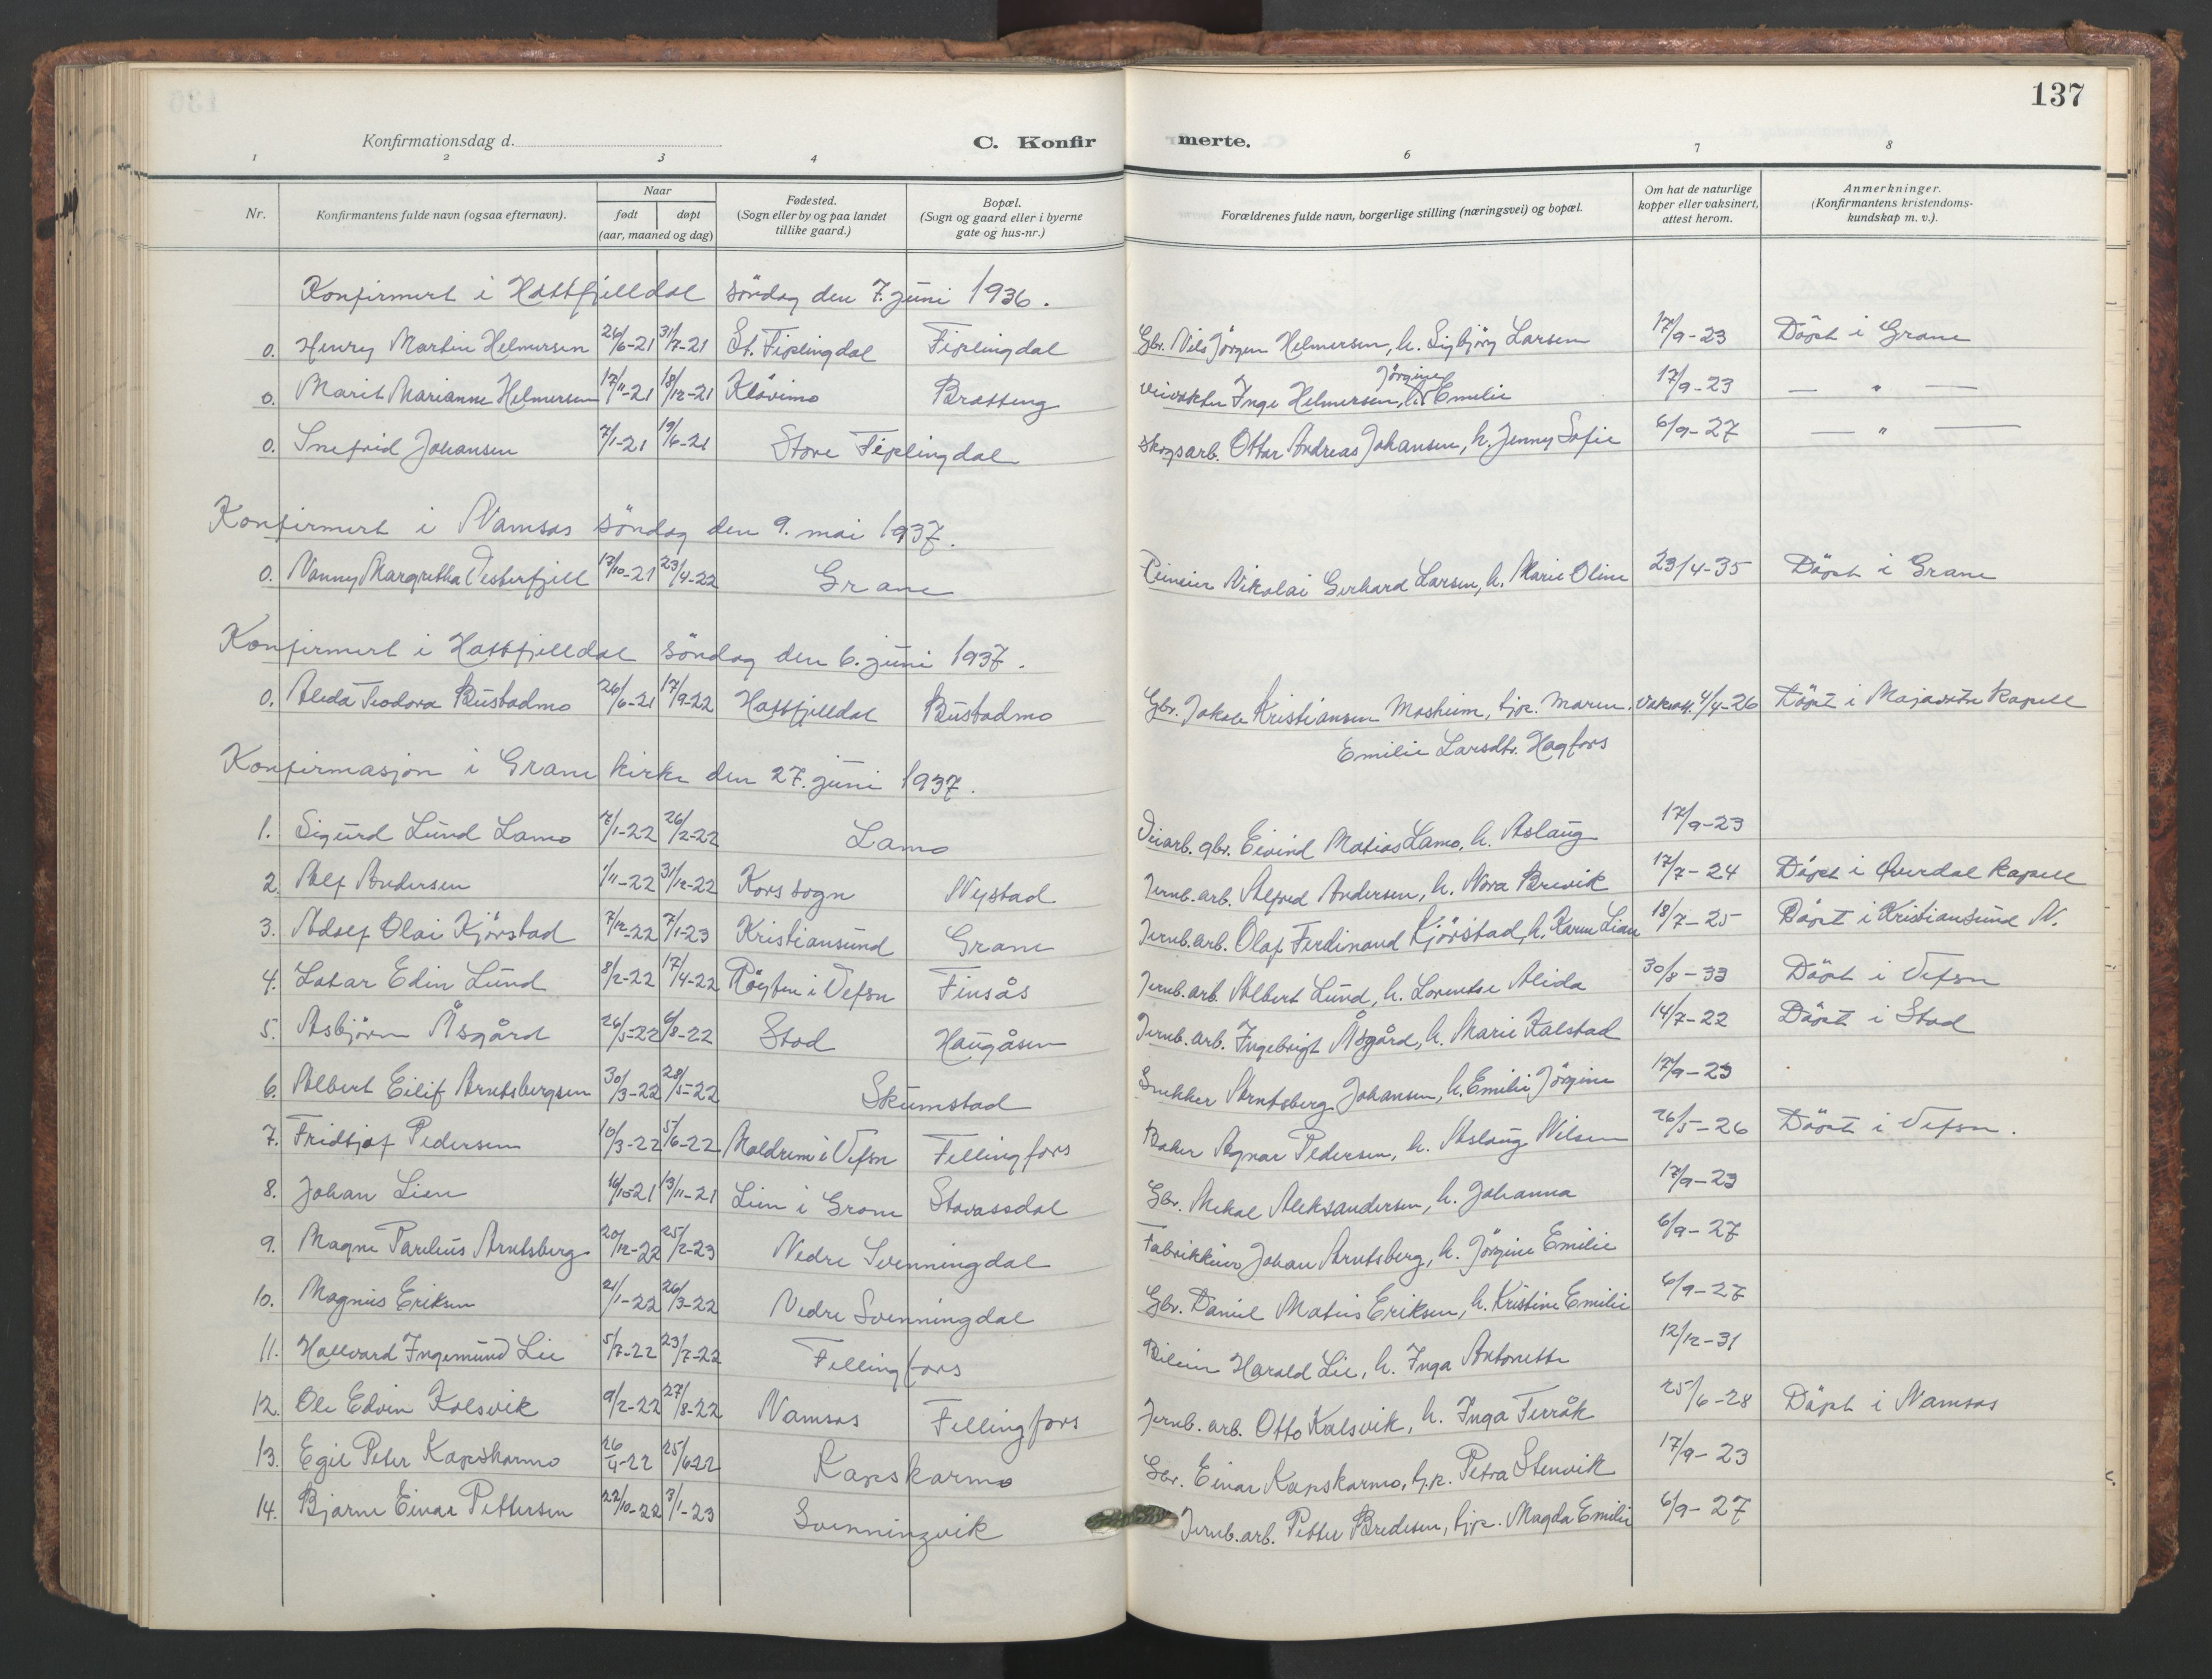 137
Konfirmationsdag d.
C. Konfir merte.
1 2 3 4 6 7 8
Nr.
Konfirmantens fulde navn (ogsaa efternavn).
Naar
født døpt
(aar, maaned og dag)
Fødested.
(Sogn eller by og paa landet
tillike gaard.)
Bopæl.
(Sogn og gaard eller i byerne
gate og hus-nr.)
Forældrenes fulde navn, borgerlige stilling (næringsvei) og bopæl.
Om hat de naturlige
kopper eller vaksinert,
attest herom.
Anmerkninger.
(Konfirmantens kristendoms-
kundskap m. v.).
Konfirmert i Hattfjelldal söndag den 7. juni 1936.
0. Henry Martin Helmersen 26/6-21 31/7-21 St. Fiplingdal Fiplingdal Gbr. Nils Jörgen Helmersen, h. Sigbjörg Larsen 17/9-23 Döpt i Grane
0. Marit Marianne Helmersen 17/11-21 18/12-21 Klövimo Bratteng Veivokter Inge Helmersen, h. Jörgine Emilie 17/9-23 — " —
0. Snefrid Johansen 7/1-21 19/6-21 Store Fiplingdal Skogsarb. Ottar Andreas Johansen, h. Jenny Sofie 6/9-27 — " —
Konfirmert i Namsos söndag den 9. mai 1937.
0. Nanny Margretha Vesterfjell 17/10-21 23/4-22 Grane Nikolai Gerhard Larsen, h. Marie Oline 23/4-35 Döpt i Grane
Konfirmert i Hattfjelldal söndag den 6. juni 1937.
0. Alida Teodora Bustadmo 26/6-21 17/9-22 Hattfjelldal Bustadmo Gbr. Jakob Kristiansen Mosheim, tjp. Maren 4/4-26 Döpt i Majavatn kapell
Emilie Larsdtr. Hagfors
Konfirmasjon i Grane kirke den 27. juni 1937.
1. Sigurd Lund Lamo 7/1-22 26/2-22 Lamo Veiarb. gbr. Eivind Matias Lamo, h. Aslaug 17/9-23
2. Alf Andersen 1/11-22 31/12-22 Kors sogn Nystad Jernb.arb. Alfred Andersen, h. Nora Brevik 17/7-24 Döpt i Överdal kapell
3. Adolf Olai Kjörstad 7/12-22 7/1-23 Kristiansund Grane Jernb.arb. Olaf Ferdinand Kjörstad, h. Karen Lian 18/7-25 Döpt i Kristiansund N.
4. Lotar Edin Lund 8/2-22 17/4-22 Röyten i Vefsn Finsås Jernb.arb. Albert Lund, h. Lorentse Alida 30/8-33 Döpt i Vefsn
5. Asbjörn Åsgård 26/5-22 6/8-22 Stod Haugåsen Jernb.arb. Ingebrigt Åsgård, h. Marie Kalstad 14/7-22 Döpt i Stod
6. Albert Eilif Arntsbergsen 30/3-22 28/5-22 Skumstad Snekker Arntsberg Johansen, h. Emilie Jörgine 17/9-23
7. Fridtjof Pedersen 10/3-22 5/6-22 Moldrem i Vefsn Fellingfors Baker Agnar Pedersen, h. Aslaug Nilsen 26/5-26 Döpt i Vefsn.
8. Johan Lien 16/10-21 13/11-21 Lien i Grane Stavassdal Gbr. Mikal Aleksandersen, h. Johanna 17/9-23
9. Magne Parelius Arntsberg 20/12-22 25/2-23 Nedre Svenningdal Johan Arntsberg, h. Jörgine Emilie 6/9-27
10. Magnus Eriksen 21/1-22 26/3-22 Nedre Svenningdal Gbr. Daniel Matius Eriksen, h. Kristine Emilie 6/9-27
11. Hallvard Ingemund Lie 5/7-22 23/7-22 Fellingfors Bileier Harald Lie, h. Inga Antonette 12/12-31
12. Ole Edvin Kolsvik 9/2-22 27/8-22 Namsos Fellingfors Jernb.arb. Otto Kolsvik, h. Inga Terråk 25/6-28 Döpt i Namsos
13. Egil Peter Kapskarmo 26/4-22 25/6-22 Kapskarmo Gbr. Einar Kapskarmo, tjp. Petra Stenvik 17/9-23
14. Bjarne Einar Pettersen 22/10-22 3/1-23 Svenningvik Jernb.arb. Petter Bredesen, tjp. Magda Emilie 6/9-27